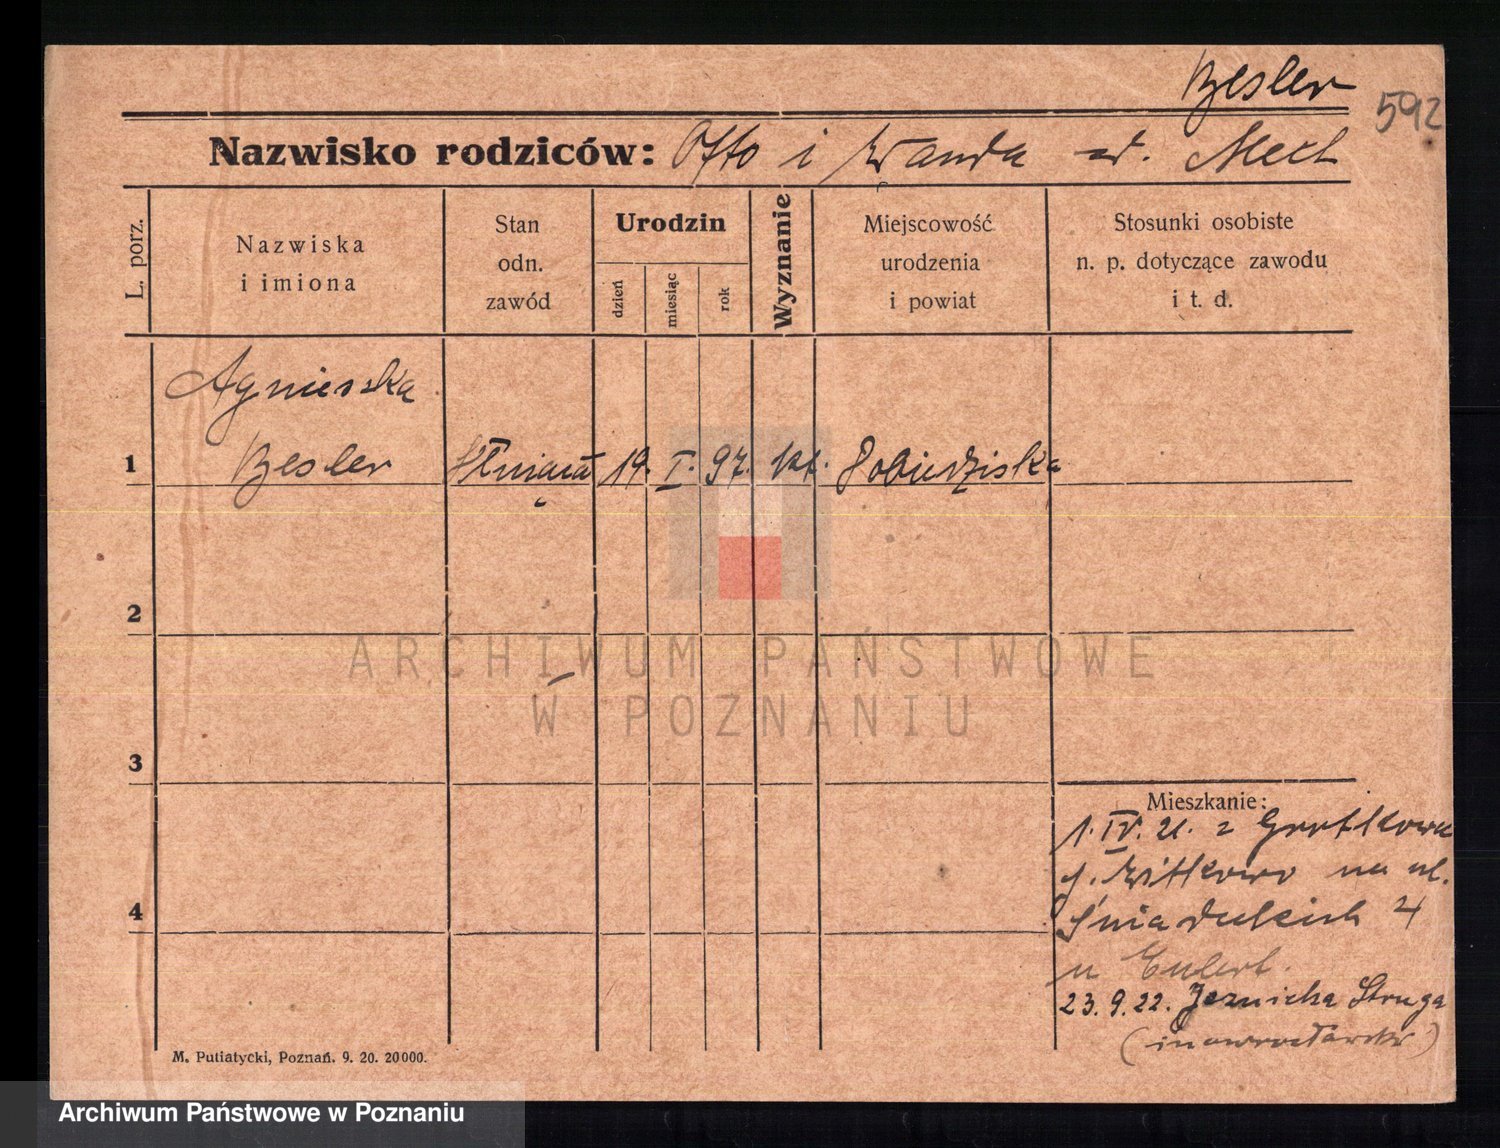 Besler
592
Nazwisko rodziców: Otto i Wanda ur. Mech
L. porz.
Nazwiska
i imiona
Stan
odn.
zawód
Urodzin
dzień
miesiąc
rok
Wyznanie
Miejscowość
urodzenia
i powiat
Stosunki osobiste
n. p. dotyczące zawodu
i t. d.
Agnieszka
1 Besler 19. I. 97. kt. Pobiedziska
2
3
4
Mieszkanie:
1. IV. 21. z Grotkowa
p. Witkowo na ul.
Śniadeckich 4
u
23.9.22. Struga
(inowrocławski)
M. Putiatycki, Poznań. 9. 20. 20000.
ARCHIWUM PAŃSTWOWE
W POZNANIU
Archiwum Państwowe w Poznaniu